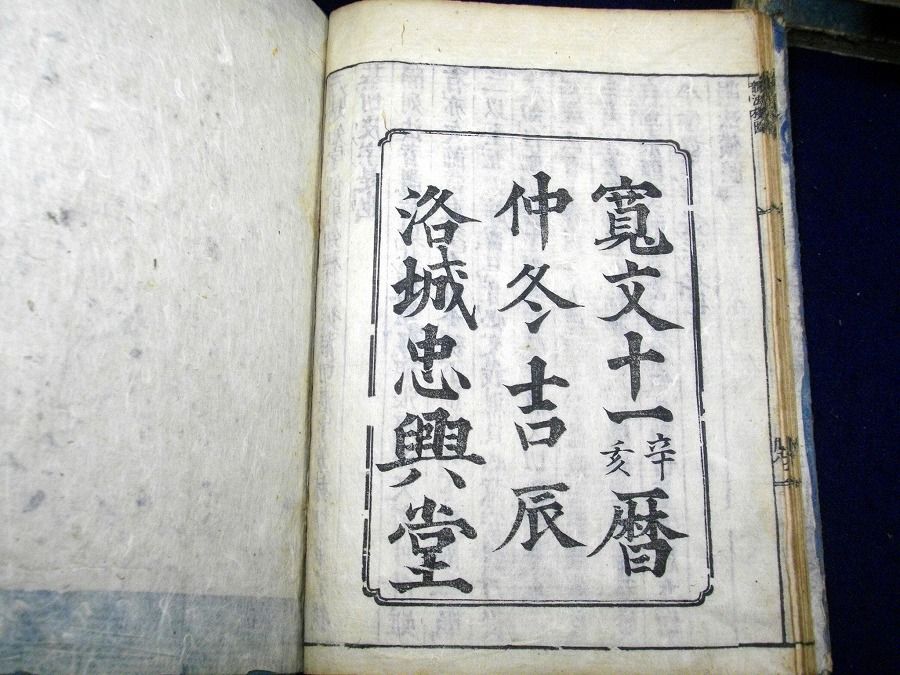 寛文十一辛亥暦
仲冬吉辰
洛城忠興堂